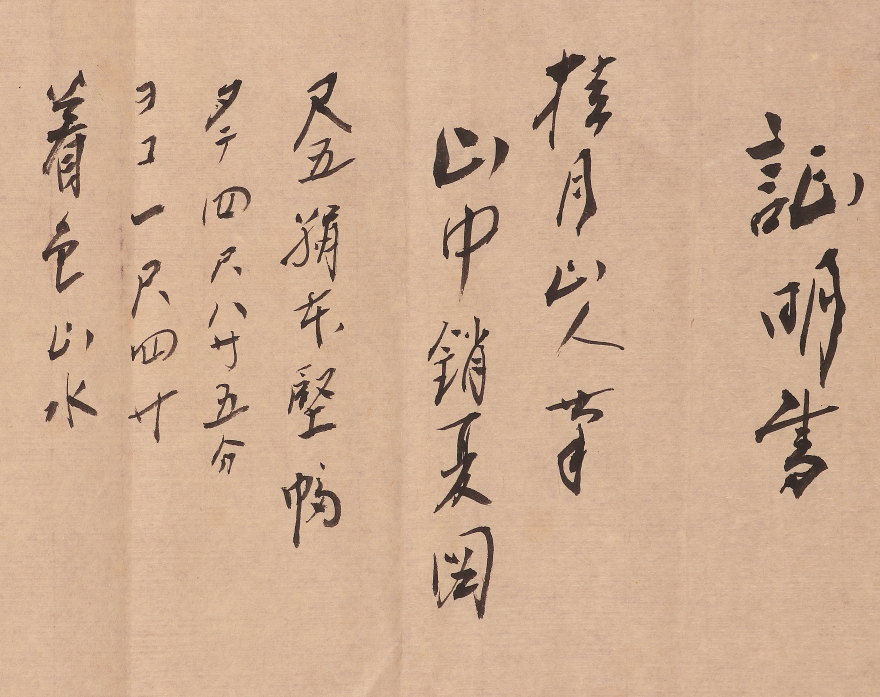 証明書
桂月山人筆
山中銷夏図
尺五絹本堅幅
タテ四尺八寸五分
ヨコ一尺四寸
着色山水